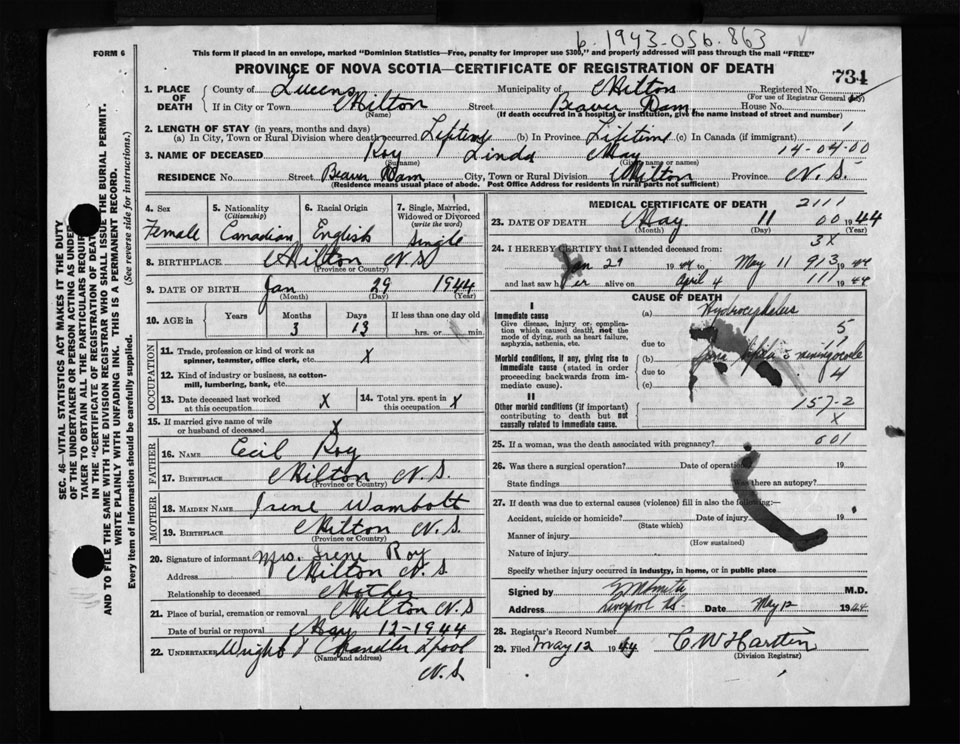 b. 1943-056.863
FORM 6
This form if placed in an envelope, marked "Dominion Statistics—Free, penalty for improper use $300," and properly addressed will pass through the mail "FREE"
PROVINCE OF NOVA SCOTIA—CERTIFICATE OF REGISTRATION OF DEATH
734
1. PLACE OF DEATH
County of Queens Municipality of Milton Registered No.
(For use of Registrar General only)
If in City or Town Milton Street Beaver Dam House No.
(Name) (If death occurred in a hospital or institution, give the name instead of street and number)
2. LENGTH OF STAY (in years, months and days)
(a) In City, Town or Rural Division where death occurred Lifetime (b) In Province Lifetime (c) In Canada (if immigrant) 1
3. NAME OF DECEASED Roy Linda May 14-04-00
(Surname) (Given name or names)
RESIDENCE No. Street Beaver Dam City, Town or Rural Division Milton Province N. S.
(Residence means usual place of abode. Post Office Address for residents in rural parts not sufficient)
4. Sex Female
5. Nationality (Citizenship) Canadian
6. Racial Origin English
7. Single, Married, Widowed or Divorced (write the word) Single
8. BIRTHPLACE Milton N.S
(Province or Country)
9. DATE OF BIRTH Jan 29 1944
(Month) (Day) (Year)
10. AGE in Years Months Days If less than one day old
3 13 hrs. or min.
OCCUPATION
11. Trade, profession or kind of work as spinner, teamster, office clerk, etc. X
12. Kind of industry or business, as cotton-mill, lumbering, bank, etc.
13. Date deceased last worked at this occupation X
14. Total yrs. spent in this occupation X
15. If married give name of wife or husband of deceased X
FATHER
16. NAME Cecil Roy
17. BIRTHPLACE Milton N. S.
(Province or Country)
MOTHER
18. MAIDEN NAME Irene Wambolt
19. BIRTHPLACE Milton N. S.
(Province or Country)
20. Signature of informant Mrs. Irene Roy
Address Milton N. S
Relationship to deceased Mother
21. Place of burial, cremation or removal Milton N. S
Date of burial or removal May 12-1944
22. UNDERTAKER Wright Chandler Lpool
(Name and address) N. S
MEDICAL CERTIFICATE OF DEATH 2111
23. DATE OF DEATH May 11 00 1944
(Month) (Day) (Year)
3X
24. I HEREBY CERTIFY that I attended deceased from:
Jan 29 1944 to May 11 913 1944
and last saw her alive on April 4 111 1944
CAUSE OF DEATH
I
Immediate cause
Give disease, injury or complication which caused death, not the mode of dying, such as heart failure, asphyxia, asthenia, etc.
(a) Hydrocephalus
due to 5
Morbid conditions, if any, giving rise to immediate cause (stated in order proceeding backwards from immediate cause).
(b) Spina bifida
due to 4
(c)
II
Other morbid conditions (if important) contributing to death but not causally related to immediate cause.
157-2
X
25. If a woman, was the death associated with pregnancy? 001
26. Was there a surgical operation? Date of operation 19
State findings Was there an autopsy?
27. If death was due to external causes (violence) fill in also the following:-
Accident, suicide or homicide? Date of injury 19
(State which)
Manner of injury
(How sustained)
Nature of injury
Specify whether injury occurred in industry, in home, or in public place
Signed by M.D.
Address Liverpool NS Date May 12 1944
28. Registrar's Record Number
29. Filed May 12 1944
(Division Registrar)
SEC. 46—VITAL STATISTICS ACT MAKES IT THE DUTY
OF THE UNDERTAKER OR PERSON ACTING AS UNDERTAKER TO OBTAIN ALL THE PARTICULARS REQUIRED
IN THE "CERTIFICATE OF REGISTRATION OF DEATH"
AND TO FILE THE SAME WITH THE DIVISION REGISTRAR WHO SHALL ISSUE THE BURIAL PERMIT.
WRITE PLAINLY WITH UNFADING INK. THIS IS A PERMANENT RECORD.
Every item of information should be carefully supplied. (See reverse side for instructions.)